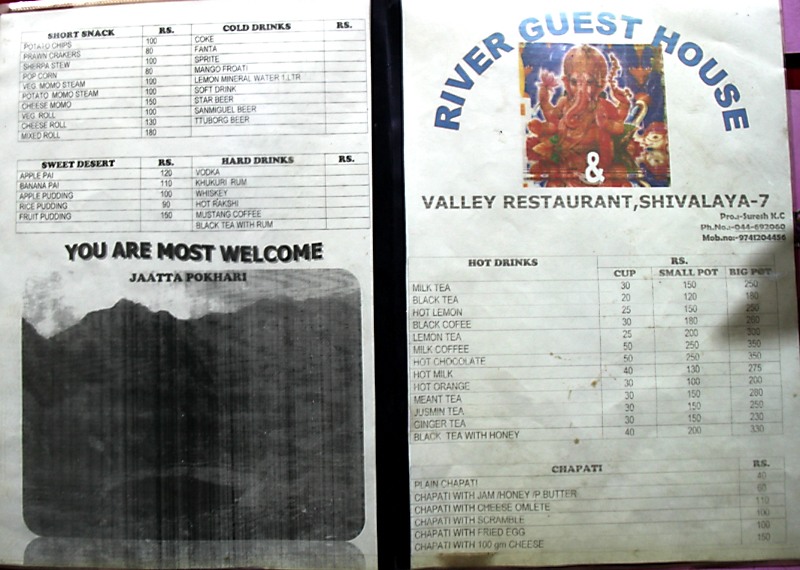 SHORT SNACK RS. COLD DRINKS RS.
POTATO CHIPS 100 COKE
PRAWN CRAKERS 80 FANTA
SHERPA STEW 100 SPRITE
POP CORN 80 MANGO FROATI
VEG MOMO STEAM 100 LEMON MINERAL WATER 1 LTR
POTATO MOMO STEAM 100 SOFT DRINK
CHEESE MOMO 150 STAR BEER
VEG. ROLL 100 SANMIGUEL BEER
CHEESE ROLL 130 TTUBORG BEER
MIXED ROLL 180
SWEET DESERT RS. HARD DRINKS RS.
APPLE PAI 120 VODKA
BANANA PAI 110 KHUKURI RUM
APPLE PUDDING 100 WHISKEY
RICE PUDDING 90 HOT RAKSHI
FRUIT PUDDING 150 MUSTANG COFFEE
BLACK TEA WITH RUM
YOU ARE MOST WELCOME
JAATTA POKHARI
RIVER GUEST HOUSE
&
VALLEY RESTAURANT,SHIVALAYA-7
Pro.:-Suresh K.C
Ph.No.:-044-692060
Mob.no:-9741204456
HOT DRINKS RS.
CUP SMALL POT BIG POT
MILK TEA 30 150 250
BLACK TEA 20 120 180
HOT LEMON 25 150
BLACK COFEE 30 180
LEMON TEA 25 200 300
MILK COFFEE 50 250 350
HOT CHOCOLATE 50 250 350
HOT MILK 40 130 275
HOT ORANGE 30 100 200
MEANT TEA 30 150 280
JUSMIN TEA 30 150 250
GINGER TEA 30 150 230
BLACK TEA WITH HONEY 40 200 330
CHAPATI RS.
PLAIN CHAPATI 40
CHAPATI WITH JAM /HONEY /P.BUTTER 60
CHAPATI WITH CHEESE OMLETE 110
CHAPATI WITH SCRAMBLE 100
CHAPATI WITH FRIED EGG 100
CHAPATI WITH 100 gm CHEESE 150